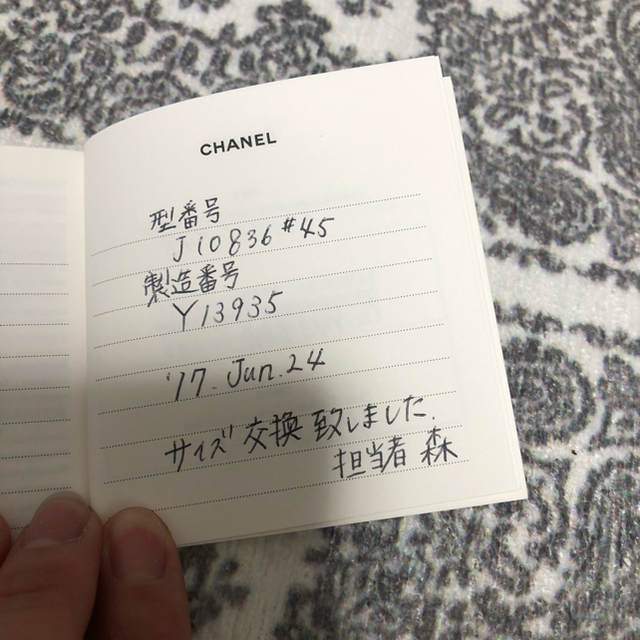 CHANEL
型番号
J10836 #45
製造番号
Y13935
'17. Jun. 24
サイズ交換致しました.
担当者 森